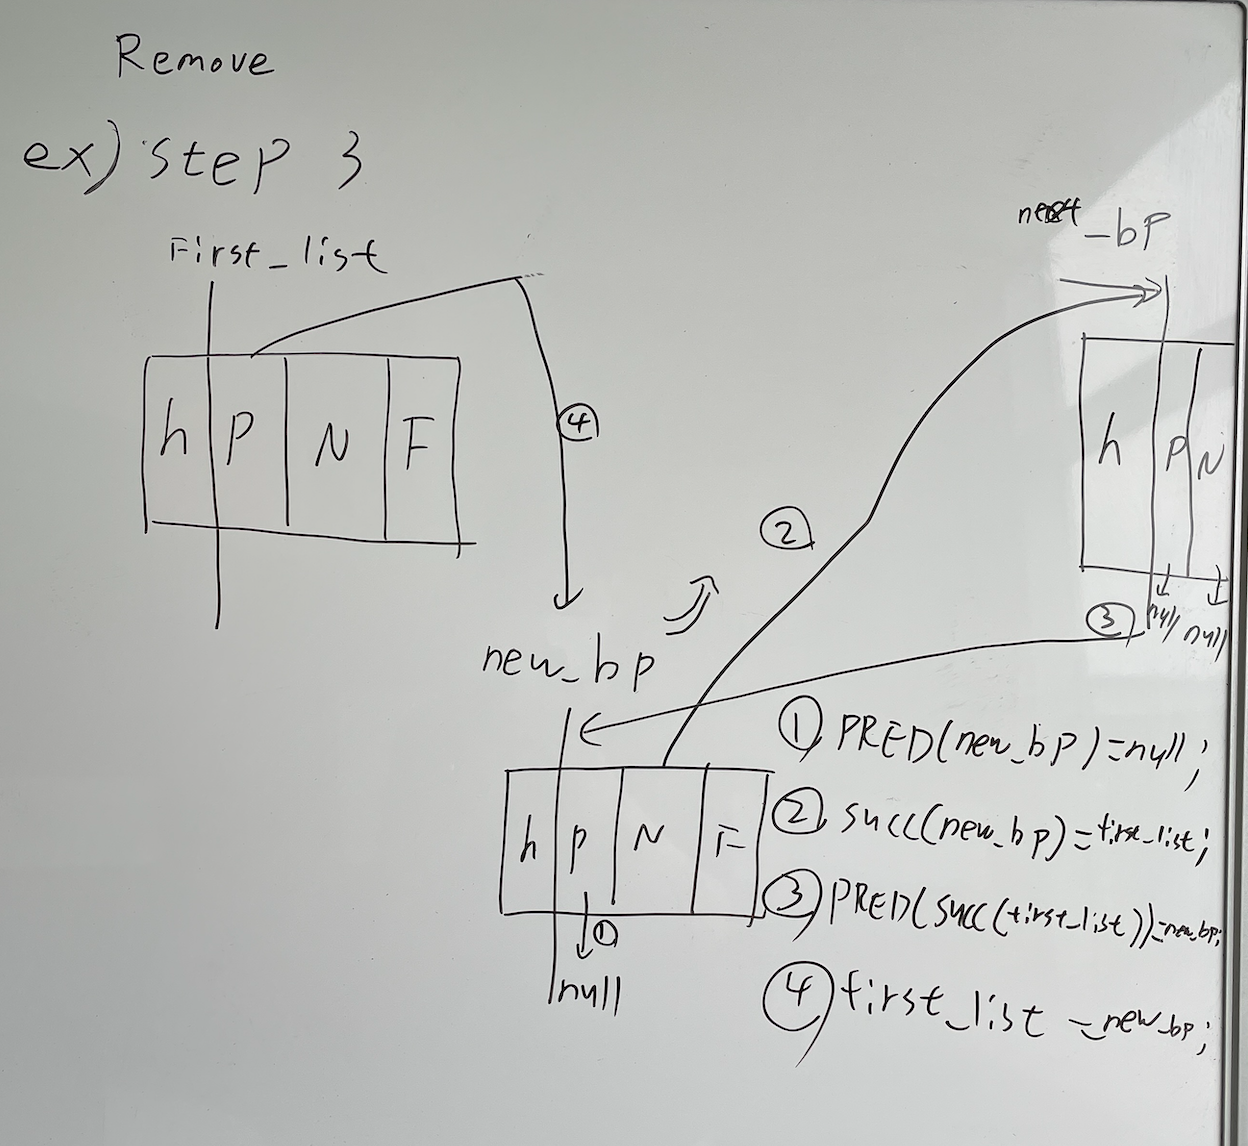 Remove
ex) step 3
First_list
next_bp
h P N F
④
h P N
②
③
null null
new_bp
① PRED(new_bp)=null;
② succ(new_bp)=first_list;
h P N F
③ PRED(succ(first_list))=new_bp;
①
null
④ first_list =new_bp;